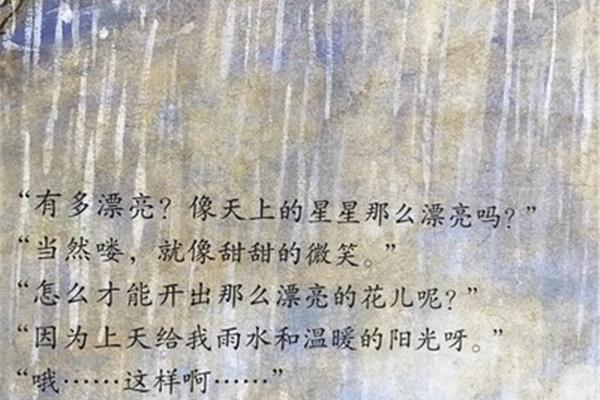 “有多漂亮？像天上的星星那么漂亮吗？”
“当然喽，就像甜甜的微笑。”
“怎么才能开出那么漂亮的花儿呢？”
“因为上天给我雨水和温暖的阳光呀。”
“哦……这样啊……”